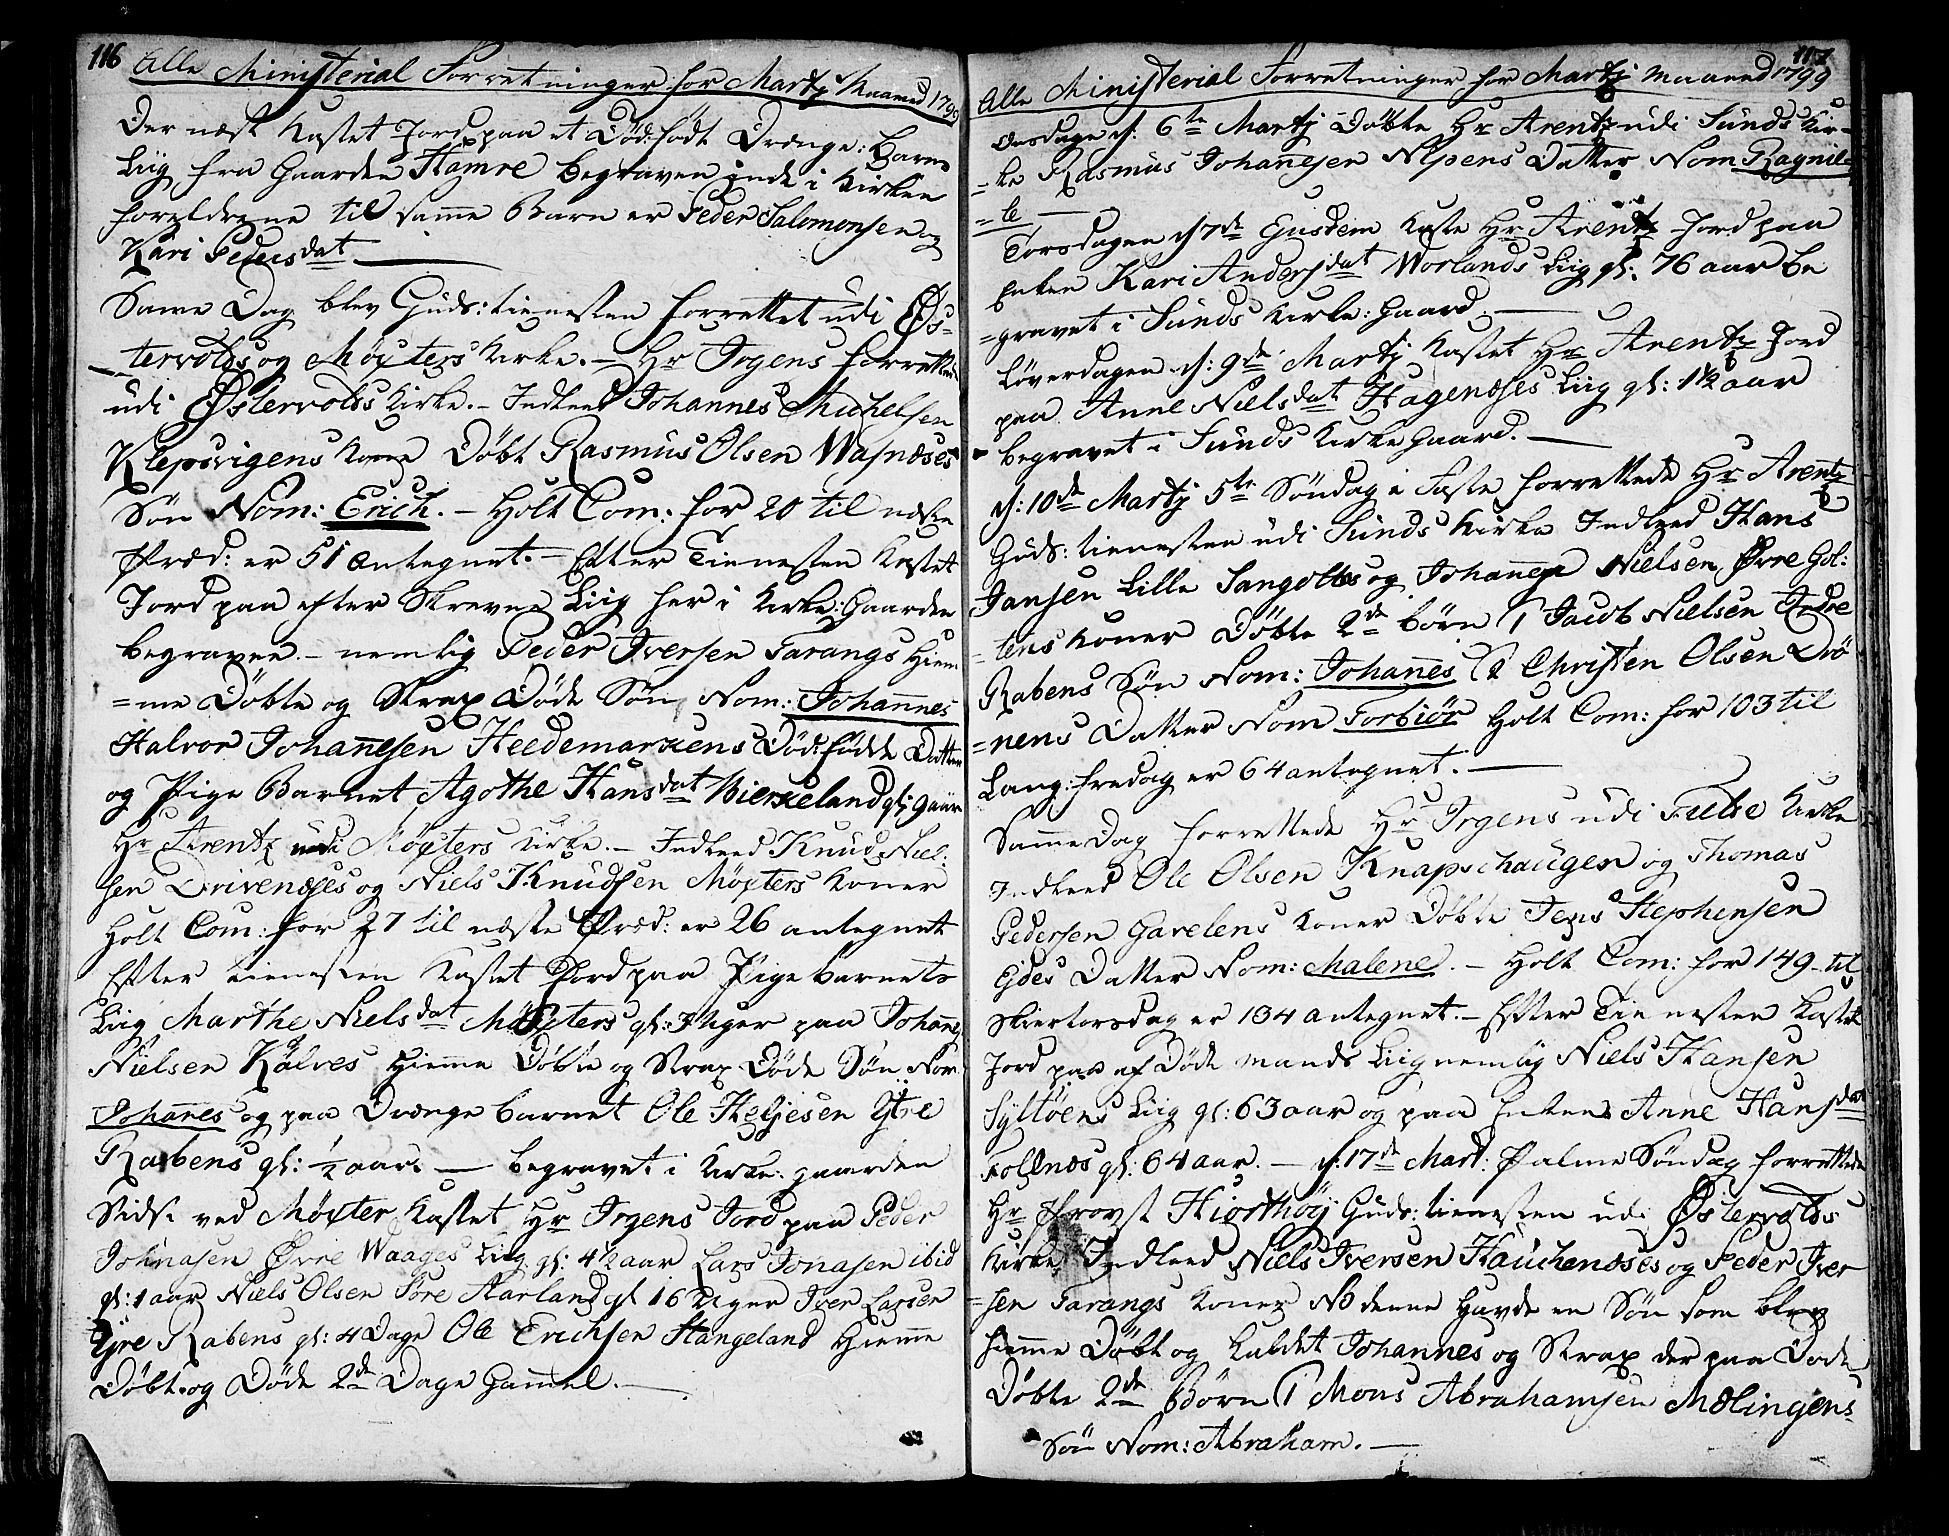 116 Alle Ministerial Forretninger for Martij Maaned 1799
Der næst Kastet Jord paa et Dödfödt Drænge: Barns
Liig fra Gaarden Hamre begraven inde i Kirken
foreldrene til same Barn er Peder Salomonsen og
Kari Pedersdat
Same Dag blev Guds: tienesten forrettet udi Øs-
tervolds og Møyters Kirke. – Hr Irgens forrettede
udi Østervolds Kirke. – Indleed Johannes Michelsen
Klepsvigens Kone Döbt Rasmus Olsen Wasnæses
Søn Nom: Erich. – Holt Com: for 20 til næste
Præd: er 51 antegnet. – Efter Tienesten Kastet
Jord paa efter Skrevne Liig her i Kirke: Gaarden
begravne. – nemlig Peder Iversen Tarangs Hiem
=me Døbte og Strax Døde Søn Nom: Johannes
Halvor Johannesen Heedemarkens Död: födde Datter
og Pige Barnet Agothe Hansdat Bierkeland gl: 9 aar
Hr Arentz udi Møyters Kirke. – Indleed Knud Niel-
sen Drivenæses og Niels Knudsen Møyters Koner
Holt Com: for 27 til næste Præd: er 26 antegnet
Efter tienesten Kastet Jord paa Pige barnets
Liig Marthe Nielsdat Møyters gl: 3 Uger paa Johannes
Nielsen Kalves Hieme Døbte og Strax Døde Søn Nom
Johannes og paa Drænge barnet Ole Heljesen Ytre
Rabens gl: ½ aar. — begravet i Kirke: gaarden
Sidst ved Møyter Kastet Hr Irgens Jord paa Peder
Johnasen Øvre Waages Liig gl: 4½ aar Lars Jonasen ibid
gl: 1 aar Niels Olsen Søre Aarland gl 16 Uger Iver Larsen
Ytre Rabens gl: 4 Dage Ole Erichsen Stangeland Hiemme
Døbt og Døde 2de Dage Gamel. —
117
Alle Ministerial Forretninger for Martij Maaned 1799
Onsdagen d: 6te Martij Døbte Hr Arentz udi Sunds Kir-
=ke Rasmus Johannesen Nipens Datter Nom Ragnil-
=le —
Torsdagen d 7de Ejusdem Kaste Hr Arentz Jord paa
Enken Kari Andersdat Worlands Liig gl: 76 aar be
=gravet i Sunds Kirke: Gaard —
Löverdagen d: 9de Martij Kastet Hr Arentz Jord
paa Anne Nielsdat Hagenæses Liig gl: 1½ aar
begravet i Sunds Kirke Gaard. —
d: 10de Martij 5te Søndag i Faste forrettede Hr Arentz
Guds: tienesten udi Sunds Kirke Indleed Hans
Jansen Lille Sangolts og Johannes Nielsen Øvre Gol:
=tens Koner Døbte 2de børn 1 Jacob Nielsen Indre
Rabens Søn Nom: Johannes (2 Christen Olsen Drö
=nens Datter Nom Torbiör Holt Com: for 103 til
Lang: fredag er 64 antegnet. —
Samme Dag forrettede Hr Irgens udi Fielse Kirke
Indleed Ole Olsen Knapschaugen og Thomas
Pedersen Gavelens Koner Döbte Jens Stephensen
Eides Datter Nom: Malene. – Holt Com: for 149 – til
Skiertorsdag er 134 antegnet. – Efter Tienesten Kastet
Jord paa af Døde mands Liig nemlig Niels Hansen
Syltöens Liig gl: 63 aar og paa Enken Anne Hansdat
Follnæs gl: 64 aar. — d: 17de Mart: Palme Søndag forrettede
Hr Provst Hiorthöy Guds: tienesten udi Østervolds
Kirke Indleed Niels Iversen Hauchenæses og Peder Iver
=sen Tarangs Koner NB denne Havde en Søn som blev
hieme Døbt og kaldet Johannes og Strax der paa Døde
Döbte 2de Börn (1 Mons Abrahamsen Mælingens
Søn Nom: Abraham. —